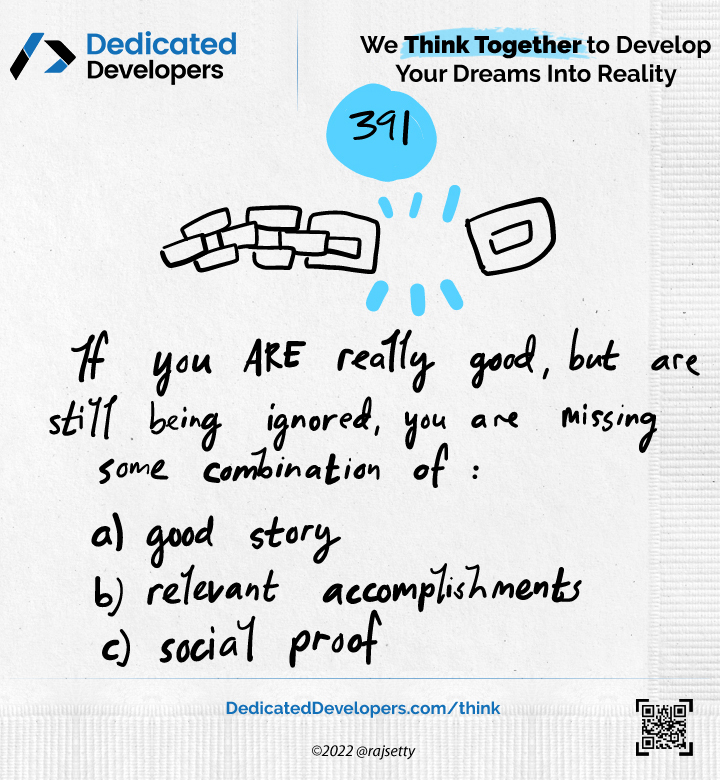 Dedicated
Developers
We Think Together to Develop
Your Dreams Into Reality
391
If you ARE really good, but are
still being ignored, you are missing
some combination of :
a) good story
b) relevant accomplishments
c) social proof
DedicatedDevelopers.com/think
©2022 @rajsetty